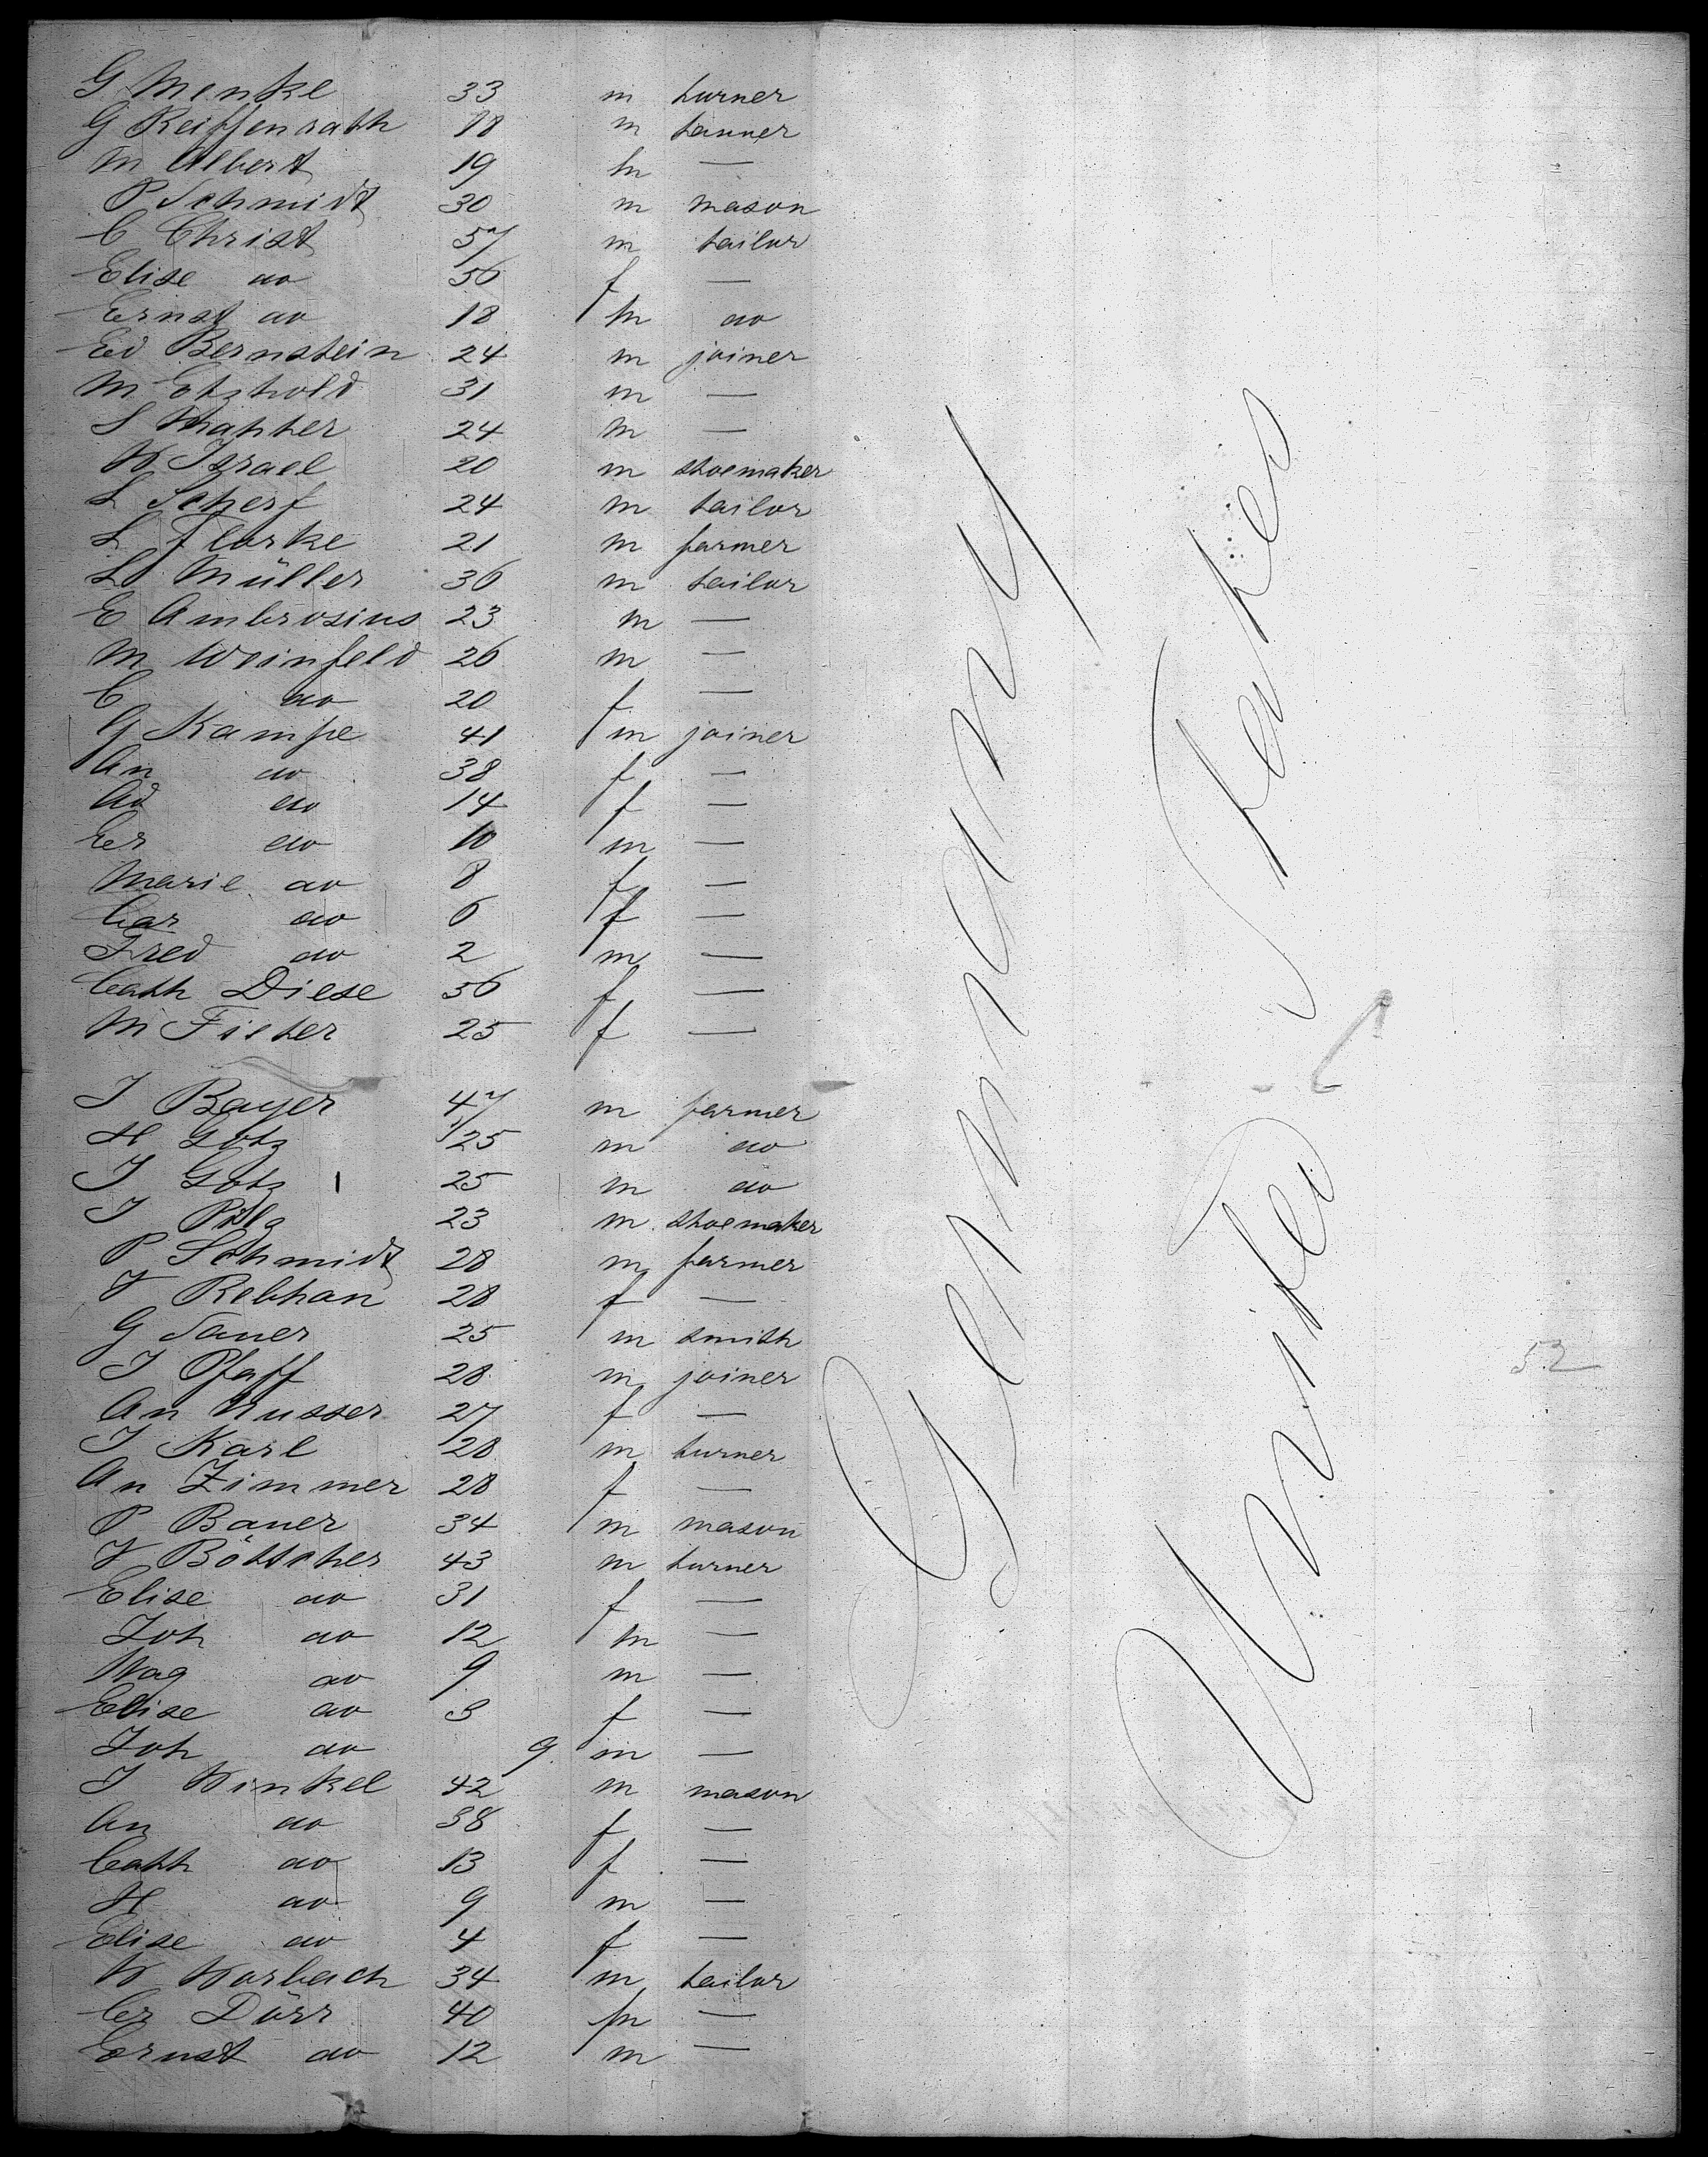 G Menke 33 m turner
G Reiffenrath 18 m tanner
M Albert 19 m —
P Schmidt 30 m mason
C Christ 57 m tailor
Elise do 56 f —
Ernst do 18 m do
Ed Bernstein 24 m joiner
M Etzhold 31 m —
S 24 m —
W Israel 20 m shoemaker
L Scherf 24 m tailor
L Florke 21 m farmer
L Müller 36 m tailor
E Ambrosius 23 m —
M Weinfeld 26 m —
C do 20 f —
G Kampe 41 m joiner
An do 38 f —
Ad do 14 f —
Er do 10 m —
Marie do 8 f —
Car do 6 f —
Fred do 2 m —
Cath Diese 56 f —
M Fieher 25 f —
J Bayer 47 m farmer
H Götz 25 m do
J Götz 25 m do
J 23 m shoemaker
P Schmidt 28 m farmer
F Rebhan 28 f —
G Sauer 25 m smith
J Pfaff 28 m joiner
An Nusser 27 f —
J Karl 28 m turner
An Zimmer 28 f —
P Bauer 34 m mason
F Böttcher 43 m turner
Elise do 31 f —
Joh do 12 m —
Wag do 9 m —
Elise do 3 f —
Joh do 9 m —
J Winkel 42 m mason
An do 38 f —
Cath do 13 f —
H do 9 m —
Elise do 4 f —
W Worbach 34 m tailor
Cr Dörr 40 m —
Ernst do 12 m —
Germany
United States
52